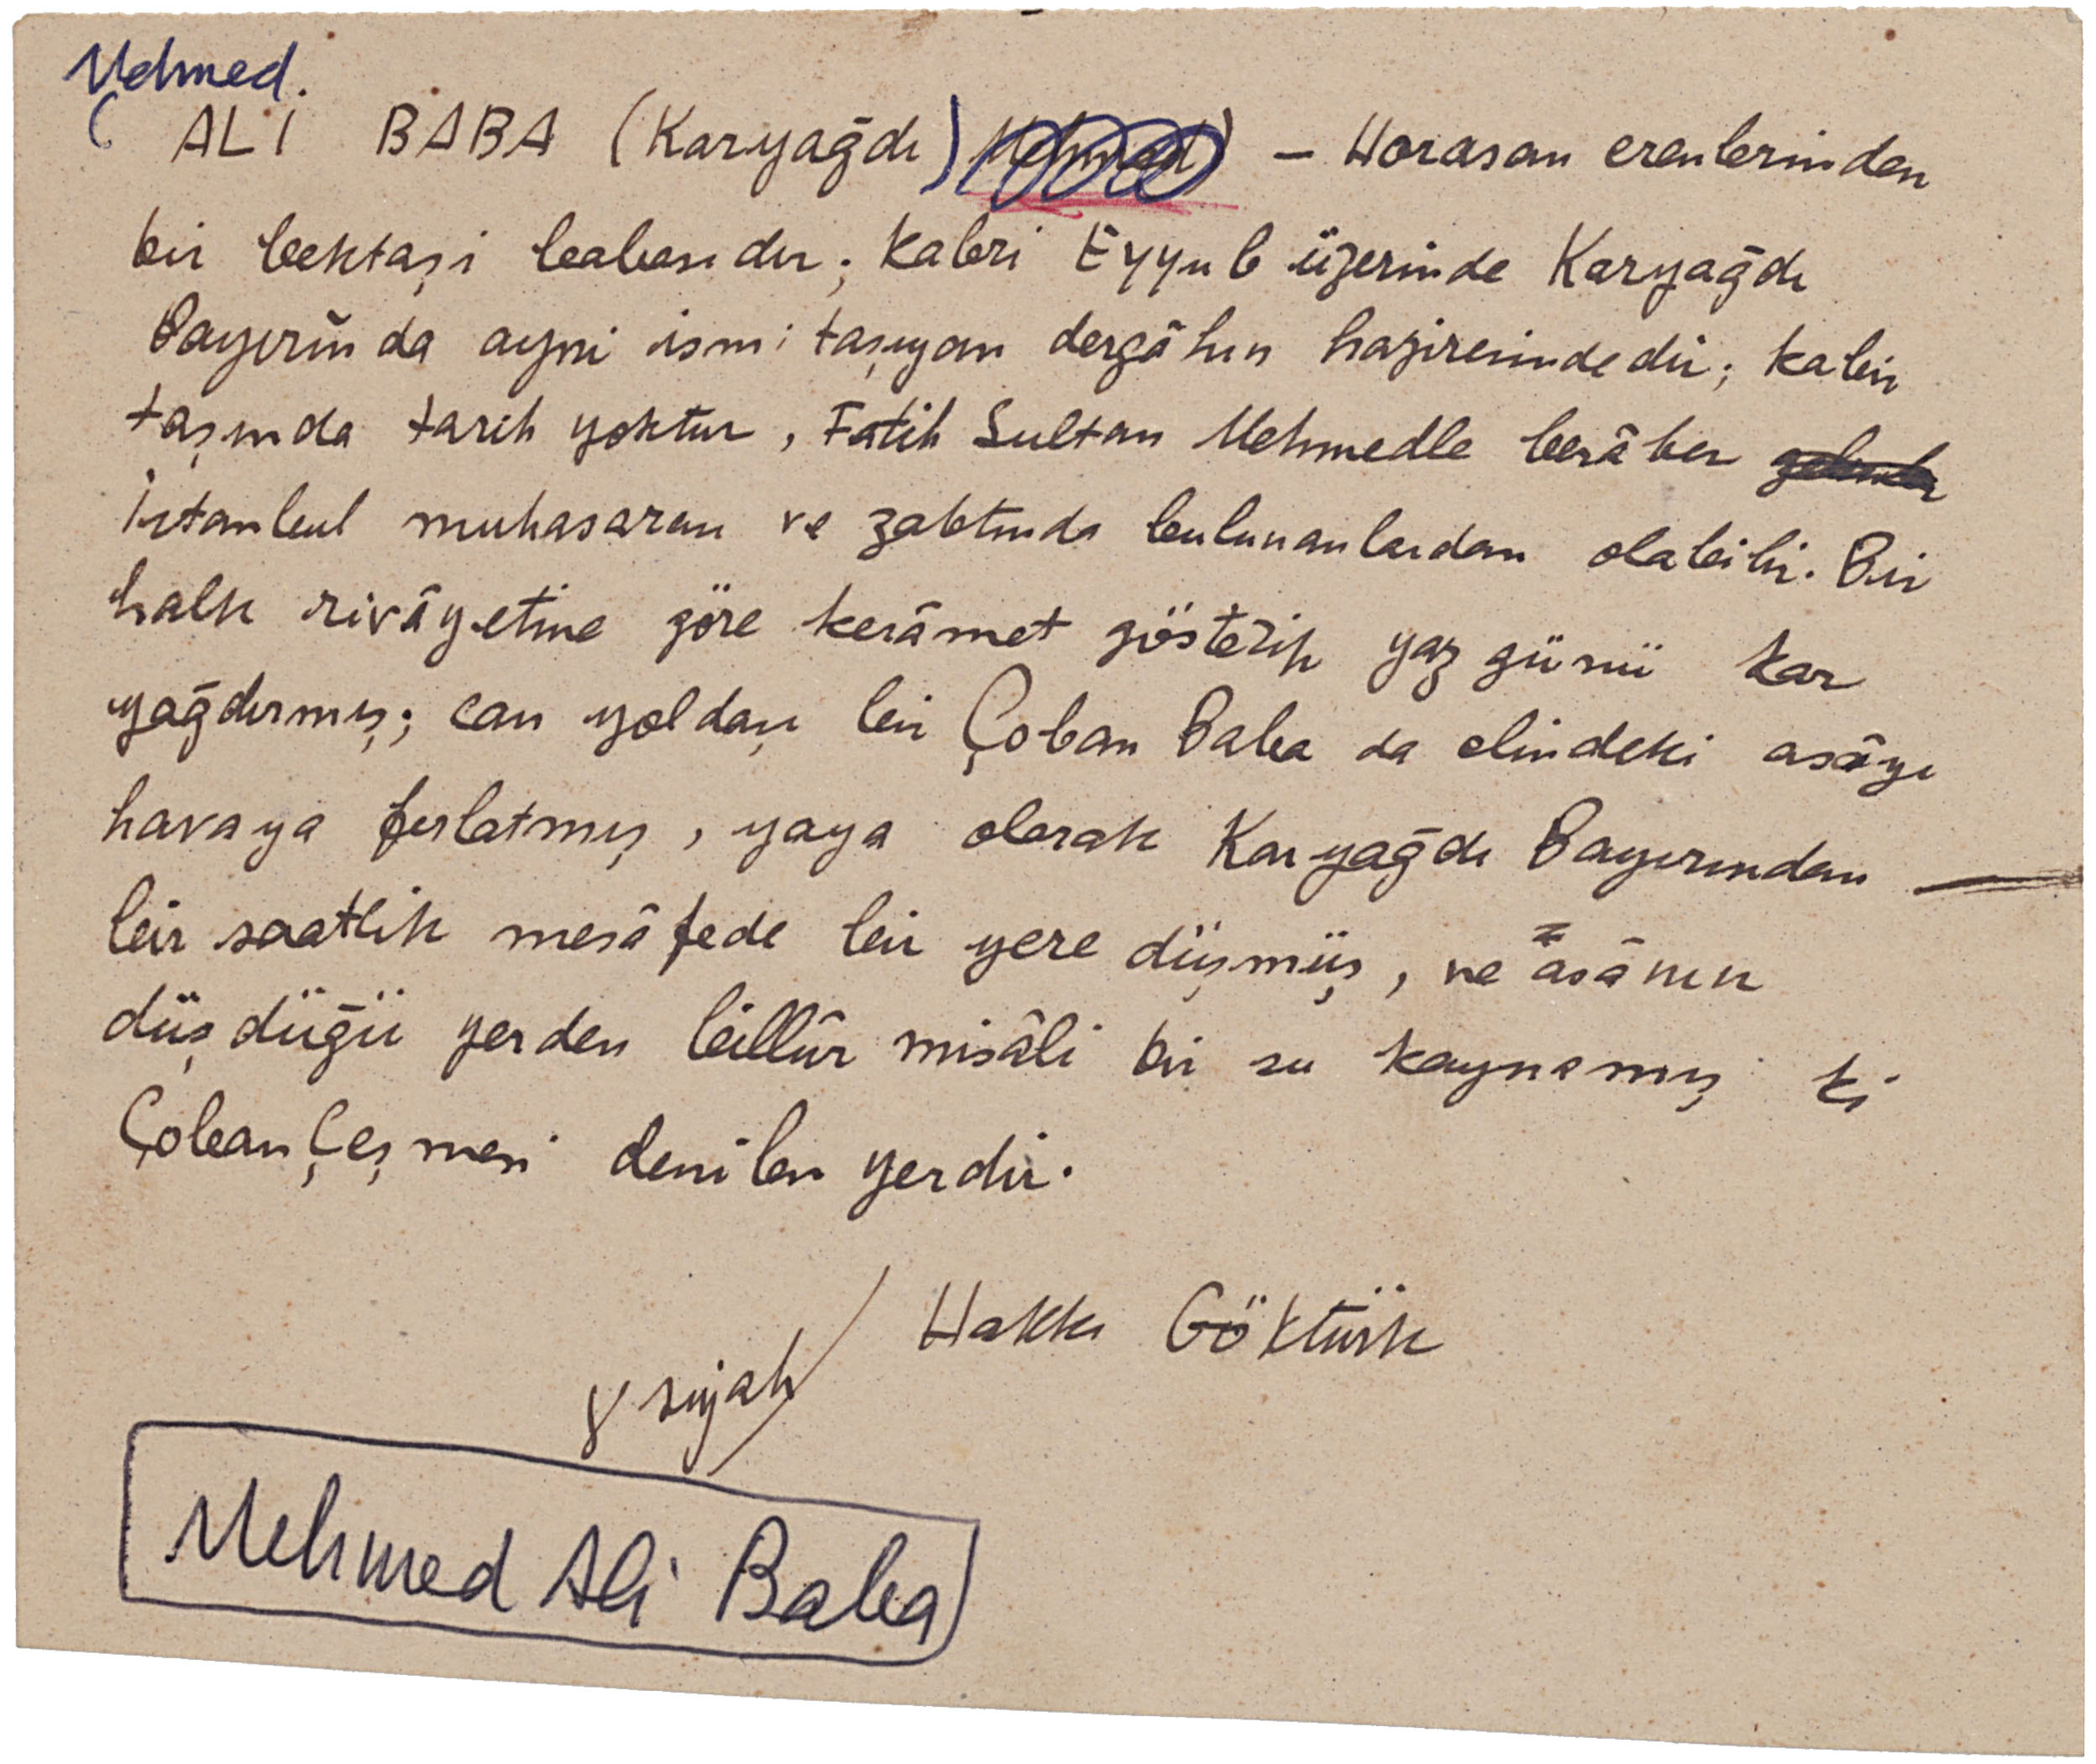 Mehmed.
( ALİ BABA (Karyağdı) Mehmed) – Horasan erenlerinden
bir bektaşi babasıdır; kabri Eyyub üzerinde Karyağdı
Bayırında ayni ismi taşıyan dergâhın haziresindedir; kabir
taşında tarih yoktur, Fatih Sultan Mehmedle berâber
İstanbul muhasarası ve zabtında bulunanlardan olabilir. Bir
halk rivâyetine göre kerâmet gösterip yaz günü kar
yağdırmış; can yoldaşı bir Çoban Baba da elindeki asâyı
havaya fırlatmış, yaya olarak Karyağdı Bayırından —
bir saatlik mesâfede bir yere düşmüş, ve asânın
düşdüğü yerden billûr misâli bir su kaynamış ki
Çoban Çeşmesi denilen yerdir.
Hakkı Göktürk
siyah
Mehmed Ali Baba